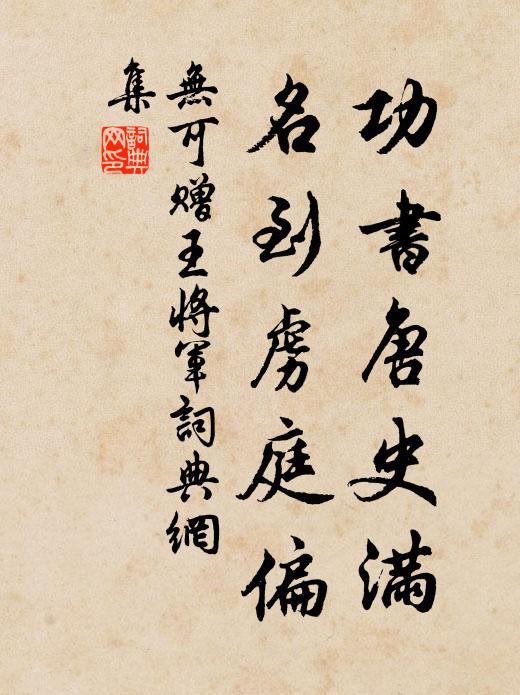 功書唐史滿
名到虜庭偏
無可贈王將軍詞典網
集
詞典網印